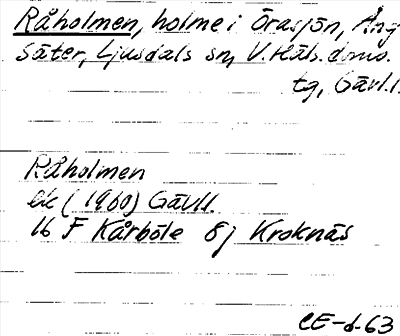 Råholmen, holme i Örasjön, Äng
Säter, Ljusdals sn, V. Häls. doms.
tg, Gävl.l.
Råholmen
ek (1960) Gävl.l.
16 F Kårböle 8j Kroknäs
CE-d-63